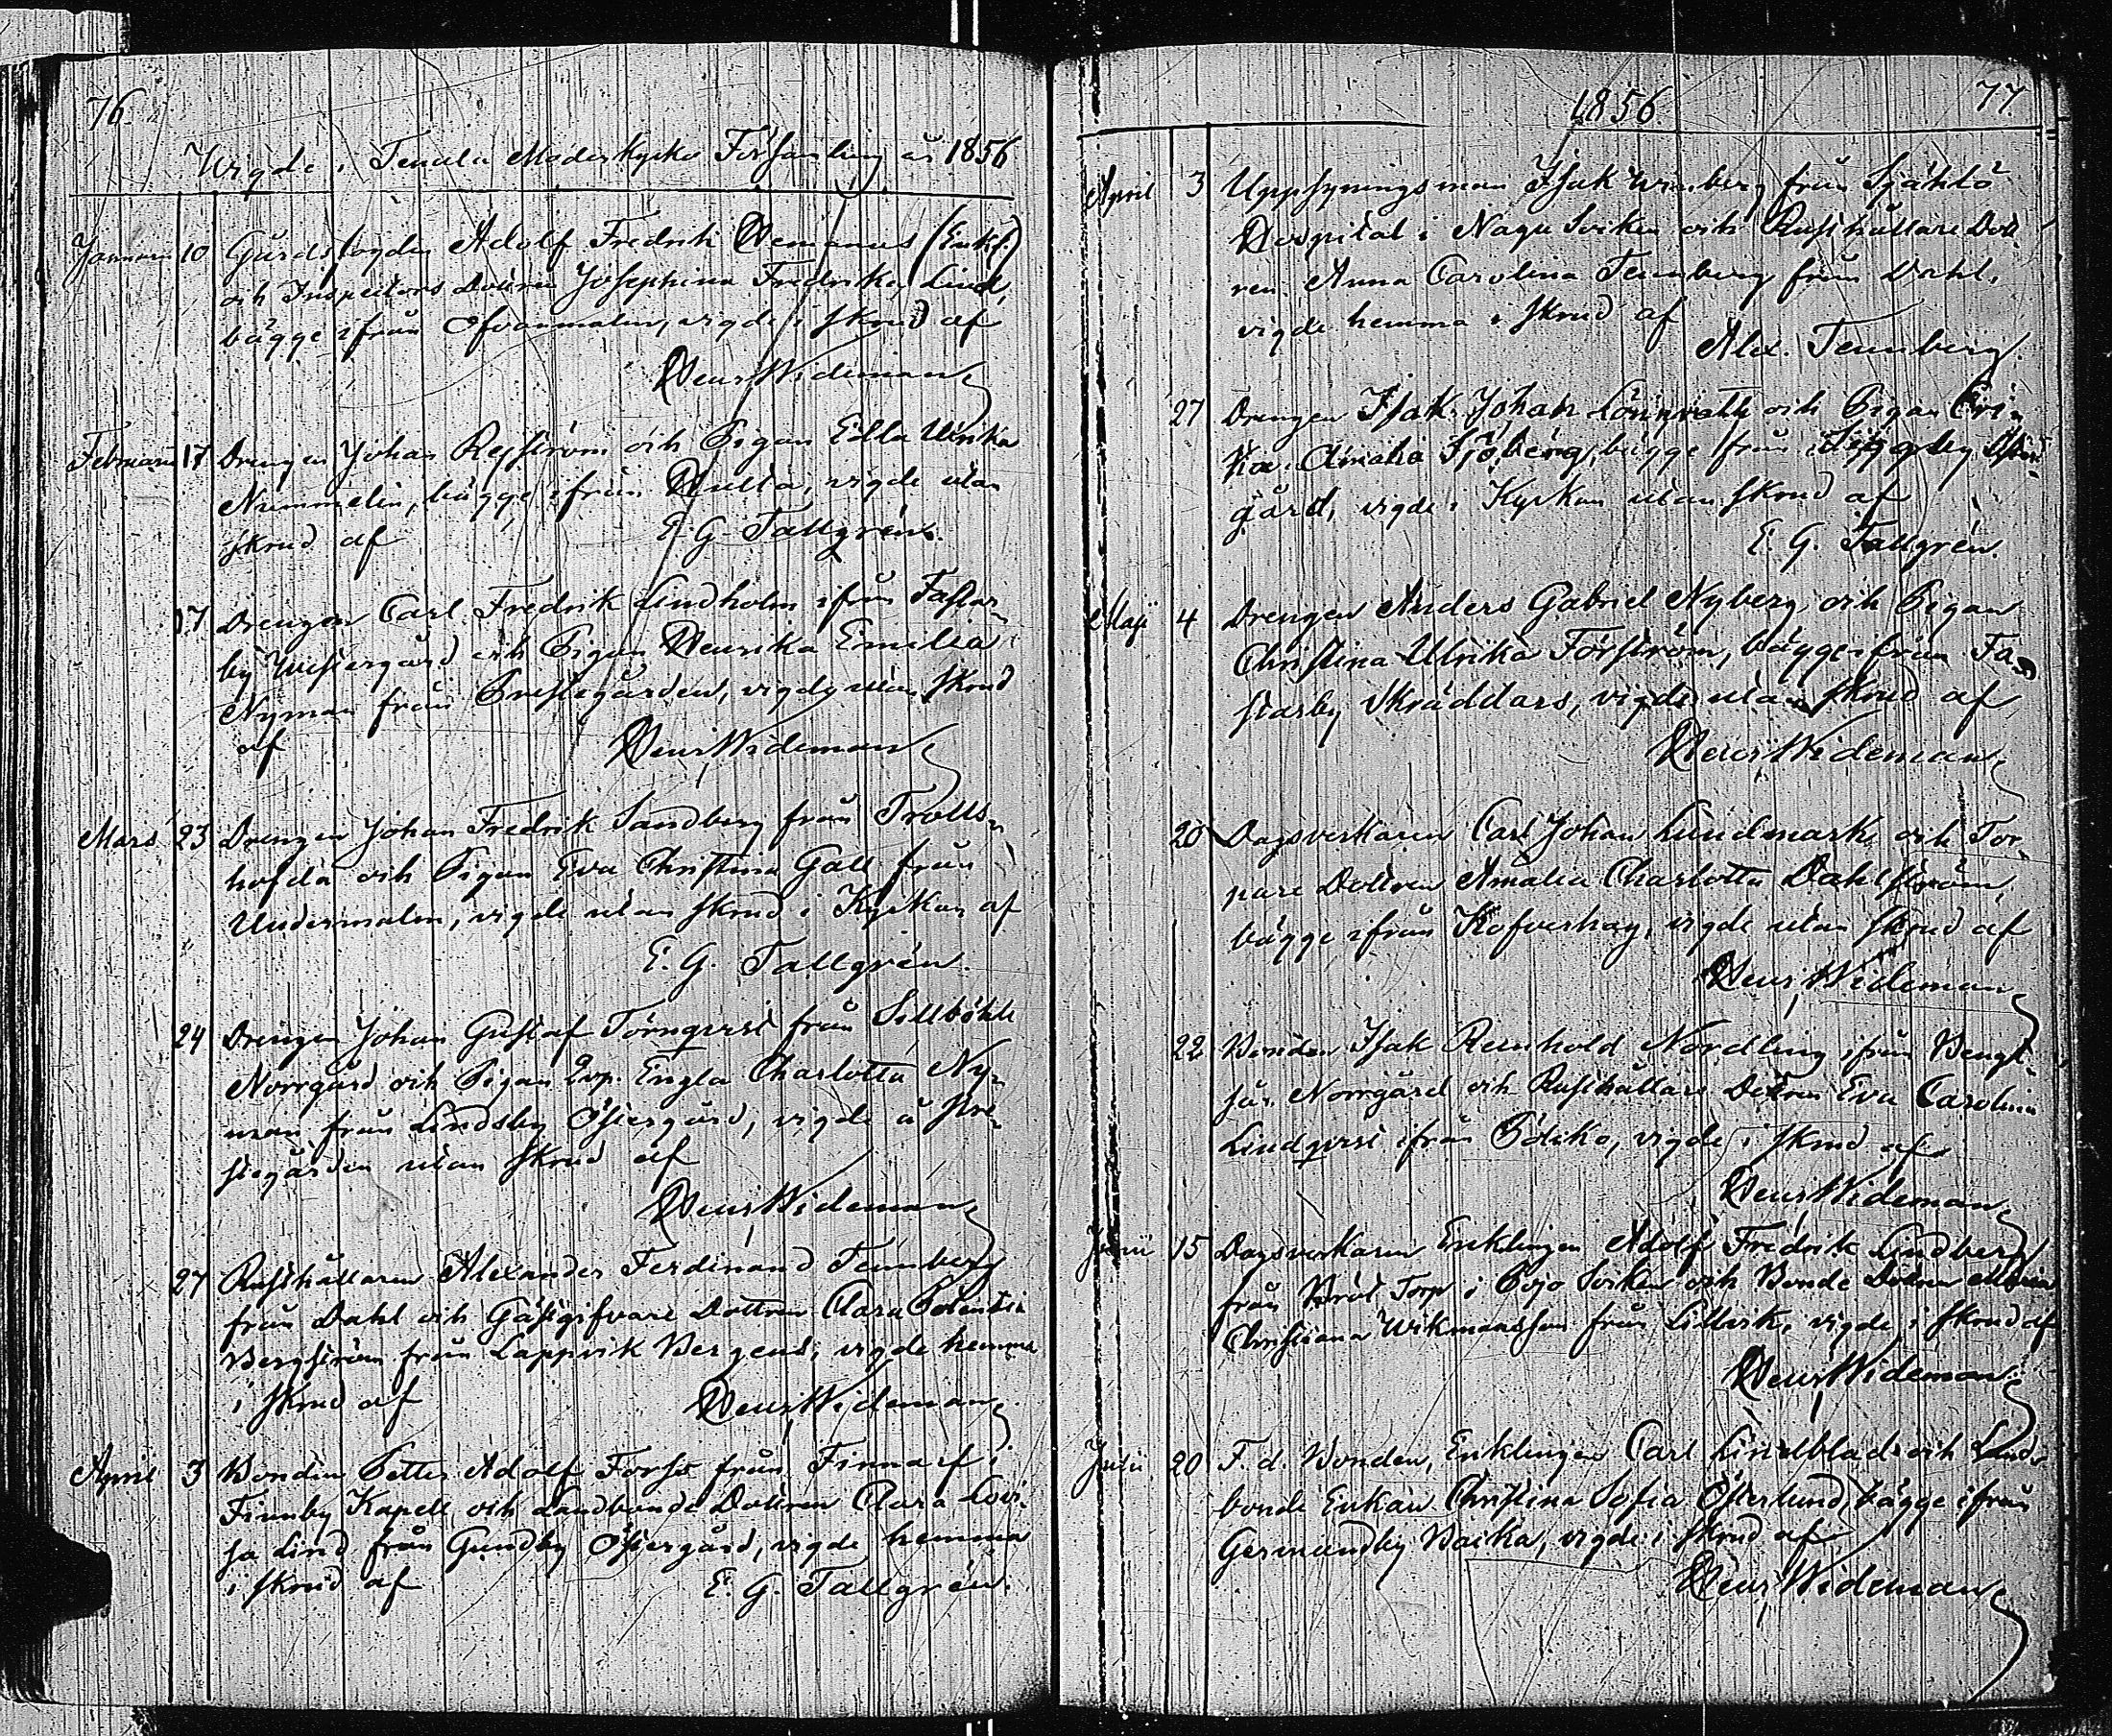 76.
Wigde i Tenala Moderkyrko Församling år 1856
Januari 10 Gårdsfogden Adolf Fredrik Hemanus (Enkl:)
och Inspectors Dottren Josephina Fredrika Lind,
bägge ifrån Ofvanmalm, vigde i skrud af
Henr. Wideman
Februari 17 Drengen Johan Sjöström och Pigan Edla Ulrika
Nummelin, bägge ifrån Hulta, vigde utan
skrud af E. G. Tallgrén.
17 Drengen Carl Fredrik Lindholm ifrån Fastar-
by Westergård och Pigan Henrika Emelia
Nyman från Prestegården, vigde utan skrud
af Henr. Wideman
Mars 23 Drengen Johan Fredrik Sandberg från Trolls-
hofda och Pigan Eva Christina Gall från
Undermalm, vigde utan skrud i Kyrkan af
E. G. Tallgrén.
24 Drengen Johan Gustaf Törnqvist från Sillböhle
Norrgård och Pigan Engla Charlotta Ny-
man från Lindsby Östergård, vigde å Pre-
stegården utan skrud af
Henr. Wideman
27 Rusthållaren Alexander Ferdinand Tennberg
från Dahl och Gästgifvare Dottren Clara
Bergström från Lappvik Bergens, vigde hemma
i skrud af Henr. Wideman
April 3 Bonden Petter Adolf Forss från Finnarf i
Finnby Kapell och Landbonde Dottren Clara Lovi-
sa Lind från Gundby Östergård, vigde hemma
i skrud af E. G. Tallgrén.
1856 77.
April 3 Uppsyningsman Isak Winberg från Själhlö
Hospital i Nagu Soken och Rusthållare Dott-
ren Anna Carolina Tennberg från Dahl,
vigde hemma i skrud af
Alex. Tennberg.
27 Drengen Isak Johan Lönnroth och Pigan Eri-
ka Amalia Sjöberg, bägge från
gård, vigde i Kyrkan utan skrud af
E. G. Tallgrén.
Maji 4 Drengen Anders Gabriel Nyberg och Pigan
Christina Ulrika Förström, bägge ifrån Fa-
starby Skräddars, vigde utan skrud af
Henr. Wideman
20 Dagsverkaren Carl Johan Lundmark och Tor-
pare Dottren Amalia Charlotta Dahlström,
bägge ifrån Kofverhag, vigde utan skrud af
Henr. Wideman
22 Bonden Isak Reinhold Nordling ifrån Bengt-
sår Norrgård och Rusthållare Dottren Eva Carolina
Lindqvist ifrån Pdiko, vigde i skrud af
Henr. Wideman
Junii 15 Dagsverkaren Enklingen Adolf Fredrik Lindberg
från Torp i Pojo Soken och Bonde Dottren Maria
Christiana Wikmansson från Lillvik, vigde i skrud af
Henr. Wideman
20 F. d. Bonden, Enklingen Carl Lindblad och Land-
bonde Enkan Christina Sofia Österlund, bägge ifrån
Germundby Backa, vigde i skrud af
Henr. Wideman